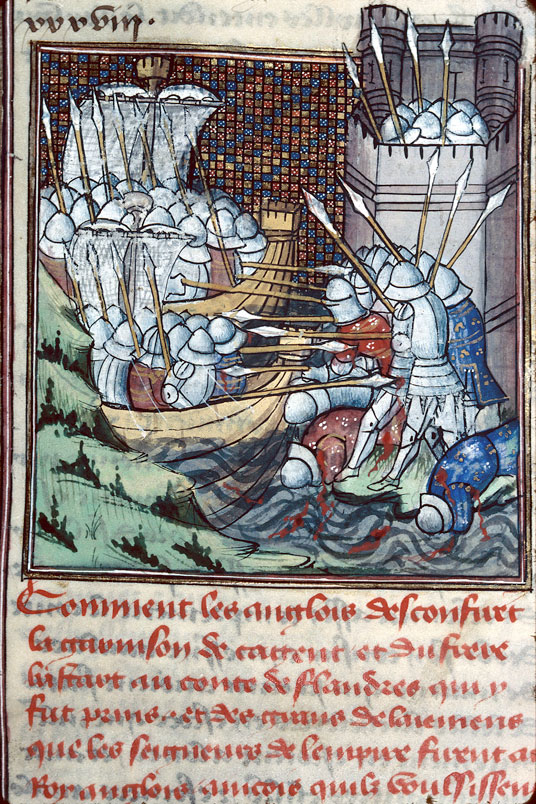 xxxviii.
Comment les anglois desconfirẽt
la garnison de cagent et du frere
bastart au conte de flandres qui y
fut prins. et des grans delaiemens
que les seigneurs de lempire furent au
Roy anglois aincois quils voulsissen